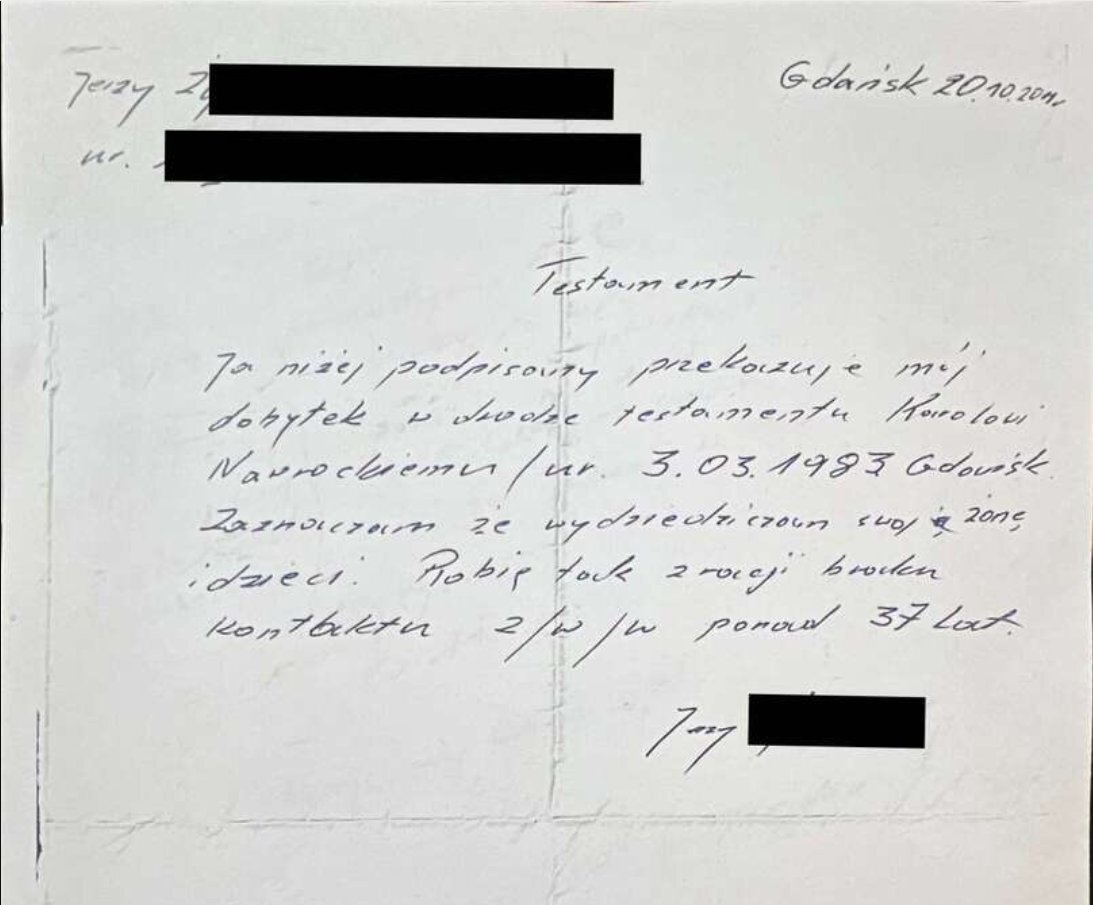 Jerzy
Gdańsk 20.10.2011r
ur.
Testament
Ja niżej podpisany przekazuje mój
dobytek w drodze testamentu Karolowi
Nawrockiemu /ur. 3.03.1983 Gdańsk.
Zaznaczam że wydziedziczam swoję żonę
i dzieci. Robię tak z racji braku
kontaktu z /w /w ponad 37 lat.
Jerzy